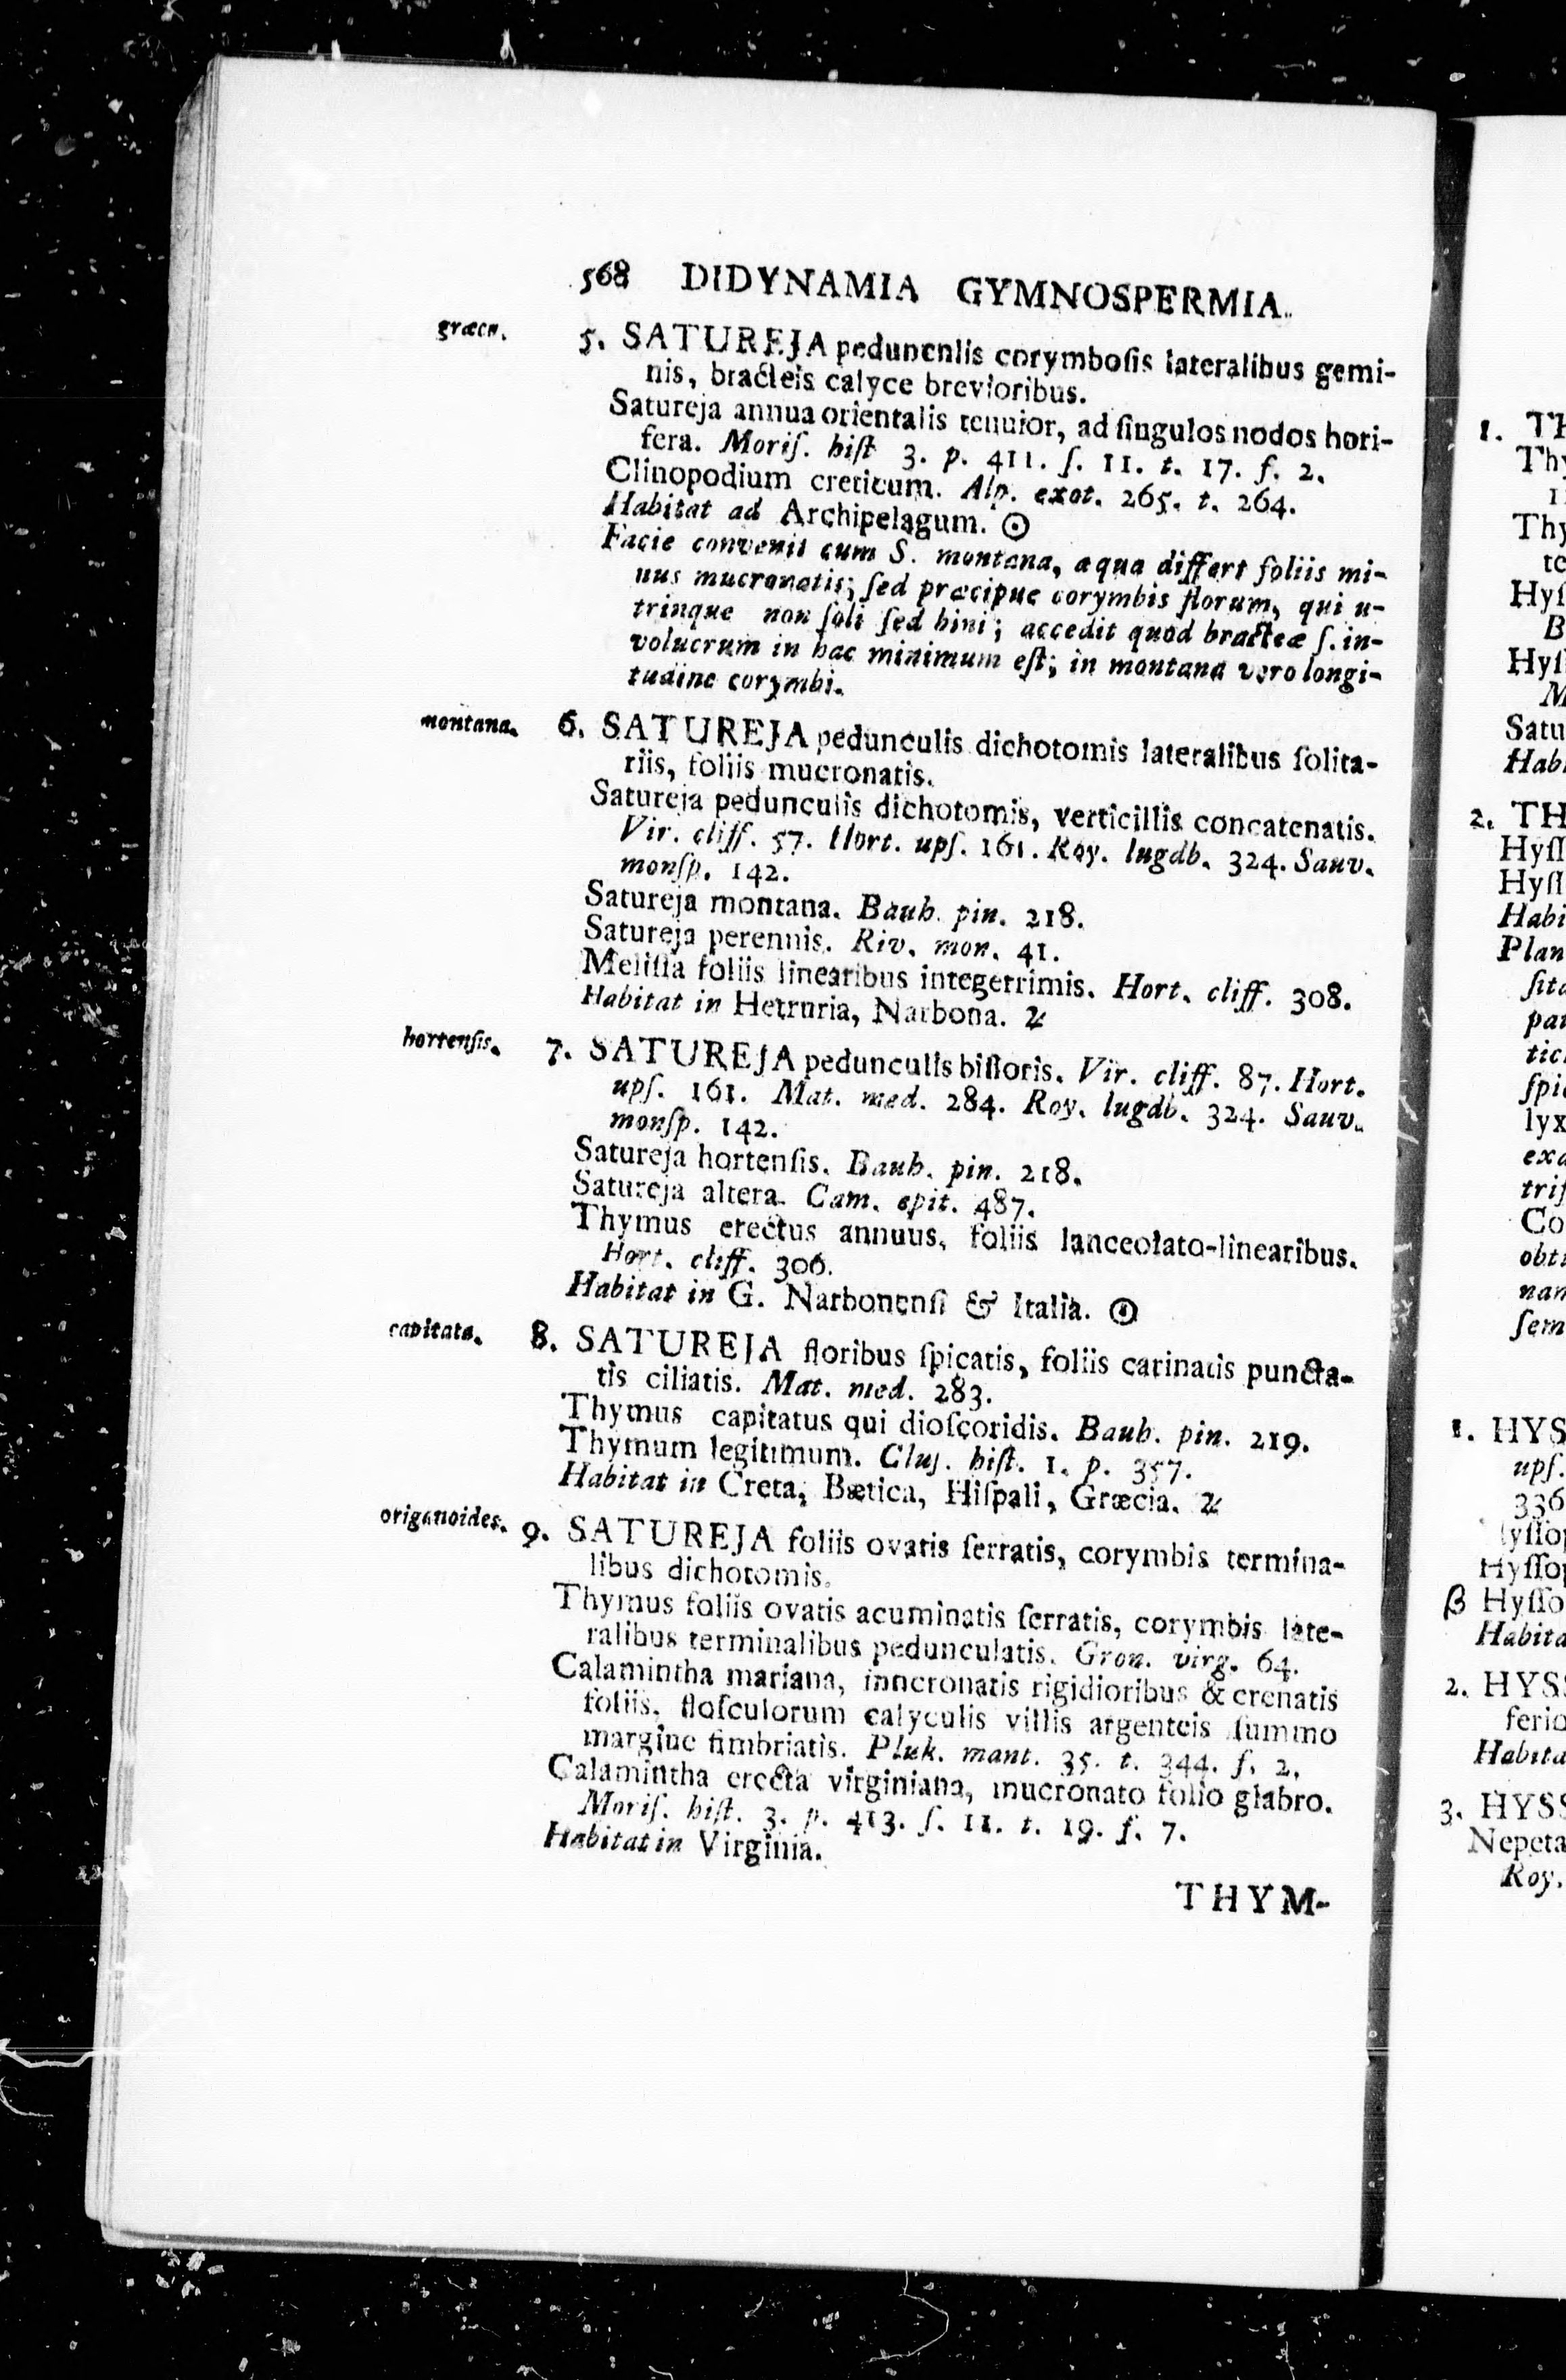 568 DIDYNAMIA GYMNOSPERMIA.
græca. 5. SATUREJA pedunculis corymboſis lateralibus gemi-
nis, bracteis calyce brevioribus.
Satureja annua orientalis tenuior, ad ſingulos nodos hori-
fera. Moriſ. hiſt 3. p. 411. ſ. 11. t. 17. f. 2.
Clinopodium creticum. Alp. exot. 265. t. 264.
Habitat ad Archipelagum. ☉
Facie convenit cum S. montana, a qua differt foliis mi-
nus mucronatis; ſed præcipue corymbis florum, qui u-
trinque non ſoli ſed bini; accedit quod bracteæ ſ. in-
volucrum in hac minimum eſt; in montana vero longi-
tudine corymbi.
montana. 6. SATUREJA pedunculis dichotomis lateralibus ſolita-
riis, foliis mucronatis.
Satureja pedunculis dichotomis, verticillis concatenatis.
Vir. cliff. 57. Hort. upſ. 161. Roy. lugdb. 324. Sauv.
monſp. 142.
Satureja montana. Bauh. pin. 218.
Satureja perennis. Riv. mon. 41.
Meliſſa foliis linearibus integerrimis. Hort. cliff. 308.
Habitat in Hetruria, Narbona. ♃
hortenſis. 7. SATUREJA pedunculis bifloris. Vir. cliff. 87. Hort.
upſ. 161. Mat. med. 284. Roy. lugdb. 324. Sauv.
monſp. 142.
Satureja hortenſis. Bauh. pin. 218.
Satureja altera. Cam. epit. 487.
Thymus erectus annuus, foliis lanceolato-linearibus.
Hort. cliff. 306.
Habitat in G. Narbonenſi & Italia. ☉
capitata. 8. SATUREJA floribus ſpicatis, foliis carinatis puncta-
tis ciliatis. Mat. med. 283.
Thymus capitatus qui dioſcoridis. Bauh. pin. 219.
Thymum legitimum. Cluſ. hiſt. 1. p. 357.
Habitat in Creta, Bætica, Hiſpali, Græcia. ♃
origanoides. 9. SATUREJA foliis ovatis ſerratis, corymbis termina-
libus dichotomis.
Thymus foliis ovatis acuminatis ſerratis, corymbis late-
ralibus terminalibus pedunculatis. Gron. virg. 64.
Calamintha mariana, mucronatis rigidioribus & crenatis
foliis, floſculorum calyculis villis argenteis ſummo
margine fimbriatis. Pluk. mant. 35. t. 344. f. 2.
Calamintha erecta virginiana, mucronato folio glabro.
Moriſ. hiſt. 3. p. 413. ſ. 11. t. 19. f. 7.
Habitat in Virginia.
THYM-
1. TH
Thy
Thy
te
Hyſ
B
Hyſ
M
Satu
Habi
2. TH
Hyſſ
Hyſſ
Habi
Plan
ſita
par
tic
ſpic
lyx
exa
triſ
Co
obtu
nam
ſem
1. HYS
upſ.
336
Hyſſop
β Hyſſo
Habita
2. HYSS
ferio
Habita
3. HYSS
Nepeta
Roy.